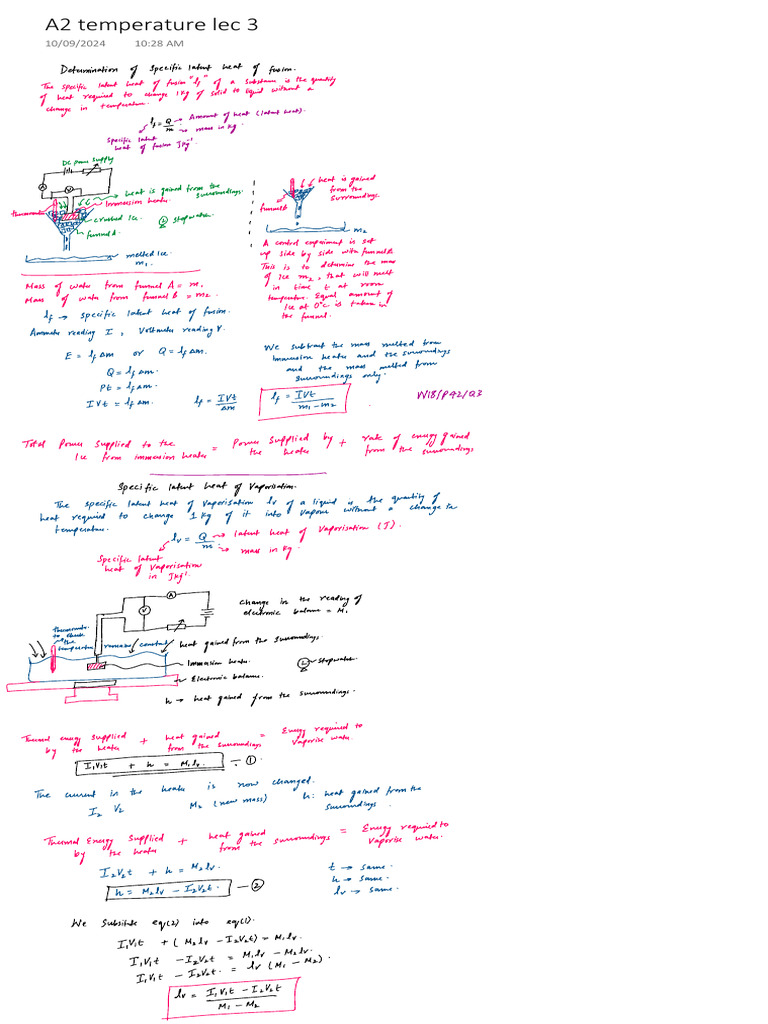 A2 temperature lec 3
10/09/2024 10:28 AM
Determination of Specific latent heat of fusion.
The specific latent heat of fusion "lf" of a substance is the quantity
of heat required to change 1kg of solid to liquid without a
change in temperature.
lf = Q/m
Amount of heat (latent heat).
mass in kg
Specific latent
heat of fusion Jkg⁻¹
DC power supply
A
V
heat is gained from the
surroundings
Immersion heater
thermometer
crushed Ice.
stopwatch
funnel A
melted Ice
m₁.
heat is gained
from the
surroundings.
funnel B
m₂
A control experiment is set
up side by side with funnel A
This is to determine the mass
of Ice m₂, that will melt
in time t at room
temperature. Equal amount of
Ice at 0°C is taken in
the funnel.
Mass of water from funnel A = m₁
Mass of water from funnel B = m₂
lf → specific latent heat of fusion.
Ammeter reading I, Voltmeter reading V.
E = lf Δm or Q = lf Δm.
Q = lf Δm.
Pt = lf Δm.
IVt = lf Δm. lf = IVt/Δm
lf = IVt/m₁ - m₂
We subtract the mass melted from
Immersion heater and the surroundings
and the mass melted from
surroundings only.
W18/P42/Q3
Total Power Supplied to the
Ice from immersion heater = Power Supplied by
the heater + rate of energy gained
from the surroundings
Specific latent heat of Vaporisation.
The specific latent heat of Vaporisation lv of a liquid is the quantity of
heat required to change 1kg of it into vapour without a change in
temperature.
lv = Q/m
latent heat of Vaporisation (J).
mass in kg
Specific latent
heat of Vaporisation
in Jkg⁻¹
A
V
Change in the reading of
electronic balance = M₁
thermometer
to check
the
temperature remains constant
heat gained from the surroundings.
Immersion heater.
stopwatch
Electronic balance.
h → heat gained from the surroundings.
Thermal energy supplied
by the heater + heat gained
from the surroundings = Energy required to
Vaporise water
I₁V₁t + h = M₁lv. — ①
The current in the heater is now changed.
I₂ V₂ M₂ (new mass)
h: heat gained from the
surroundings.
Thermal Energy Supplied
by the heater + heat gained
from the surroundings = Energy required to
Vaporise water.
I₂V₂t + h = M₂lv.
h = M₂lv - I₂V₂t. — ②
t → same.
h → same.
lv → same.
We Subsitute eq(2) into eq(1).
I₁V₁t + (M₂lv - I₂V₂t) = M₁lv.
I₁V₁t - I₂V₂t = M₁lv - M₂lv.
I₁V₁t - I₂V₂t = lv (M₁ - M₂).
lv = I₁V₁t - I₂V₂t/M₁ - M₂